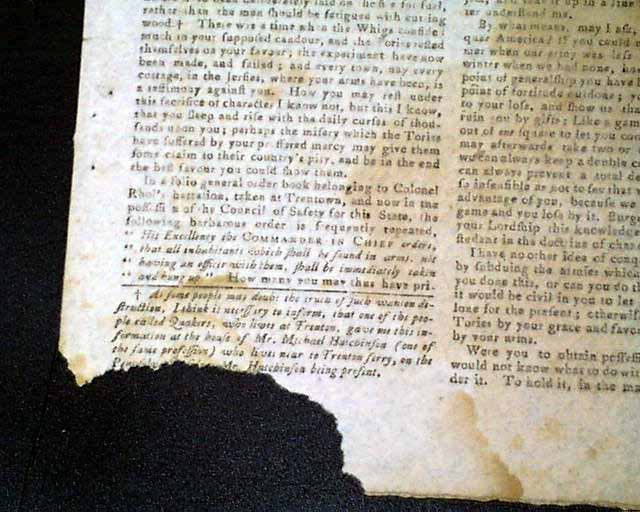 rather than the men should be fatigued with cutting
wood.† There was a time when the Whigs confided
much in your supposed candour, and the Tories rested
themselves on your favour; the experiment have now
been made, and failed; and every town, nay every
cottage, in the Jersies, where your arms have been, is
a testimony against you. How you may rest under
this sacrifice of character I know not, but this I know,
that you sleep and rise with the daily curses of thou-
sands upon you; perhaps the misery which the Tories
have suffered by your proffered mercy may give them
some claim to their country's pity, and be in the end
the best favour you could show them.
In a folio general order book belonging to Colonel
Rhol's battalion, taken at Trentown, and now in the
possession of the Council of Safety for this State, the
following barbarous order is frequently repeated,
" His Excellency the COMMANDER IN CHIEF orders,
" that all inhabitants which shall be found in arms, not
" having an officer with them, shall be immediately taken
" and hung up." How many you may thus have pri-
† As some people may doubt the truth of such wanton de-
struction, I think it necessary to inform, that one of the peo-
ple called Quakers, who lives at Trenton, gave me this in-
formation at the house of Mr. Michael Hutchinson (one of
the same profession) who lives near to Trenton ferry, on the
Mr. Hutchinson being present.
ter understand me.
By what means, may I ask,
quer America? If you could
mer when our army was less
winter when we had none, how
point of generalship you have
point of fortitude outdone; y
to your loss, and show us that
ruin you by gifts: Like a game
out of one square to let you com
may afterwards take two or
we can always keep a double c
can always prevent a total de
so insensible as not to see that
advantage of you, because we
game and you lose by it. Burg
your Lordship this knowledge
student in the doctrine of chan
I have no other idea of conq
by subduing the armies which
you done this, or can you do th
it would be civil in you to let
lone for the present; otherwise
Tories by your grace and favour
by your arms.
Were you to obtain possessi
would not know what to do wit
der it. To hold it, in the man